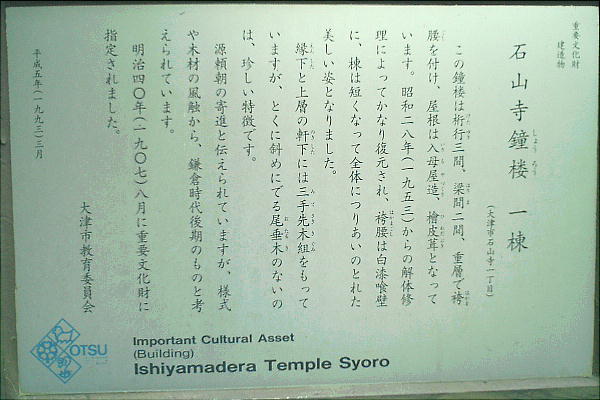 重要文化財
建造物
石山寺鐘楼 一棟
しょうろう
(大津市石山寺一丁目)
この鐘楼は桁行三間、梁間二間、重層で袴
腰を付け、屋根は入母屋造、檜皮葺となって
います。昭和二八年(一九五三)からの解体修
理によってかなり復元され、袴腰は白漆喰壁
に、棟は短くなって全体につりあいのとれた
美しい姿となりました。
縁下と上層の軒下には三手先木組をもって
いますが、とくに斜めにでる尾垂木のないの
は、珍しい特徴です。
源頼朝の寄進と伝えられていますが、様式
や木材の風触から、鎌倉時代後期のものと考
えられています。
明治四〇年(一九〇七)八月に重要文化財に
指定されました。
平成五年(一九九三)三月
大津市教育委員会
OTSU
Important Cultural Asset
(Building)
Ishiyamadera Temple Syoro